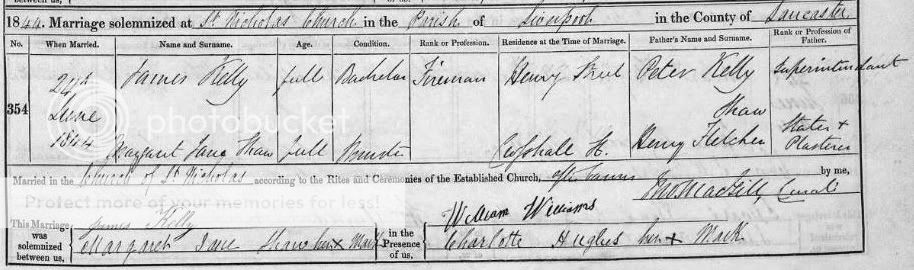 1844. Marriage solemnized at St Nicholas Church in the Parish of Liverpool in the County of Lancaster
No. When Married. Name and Surname. Age. Condition. Rank or Profession. Residence at the Time of Marriage. Father's Name and Surname. Rank or Profession of Father.
354 24th June 1844 James Kelly full Bachelor Fireman Henry Street Peter Kelly Superintendant
Margaret Jane Shaw full Henry Fletcher Shaw Slater & Plasterer
Married in the Church of St Nicholas according to the Rites and Ceremonies of the Established Church, after Banns by me,
Curate
This Marriage was solemnized between us, James Kelly
Margaret Jane Shaw her x Mark
in the Presence of us, William Williams
Charlotte Hughes her x Mark
photobucket
Protect more of your memories for less!